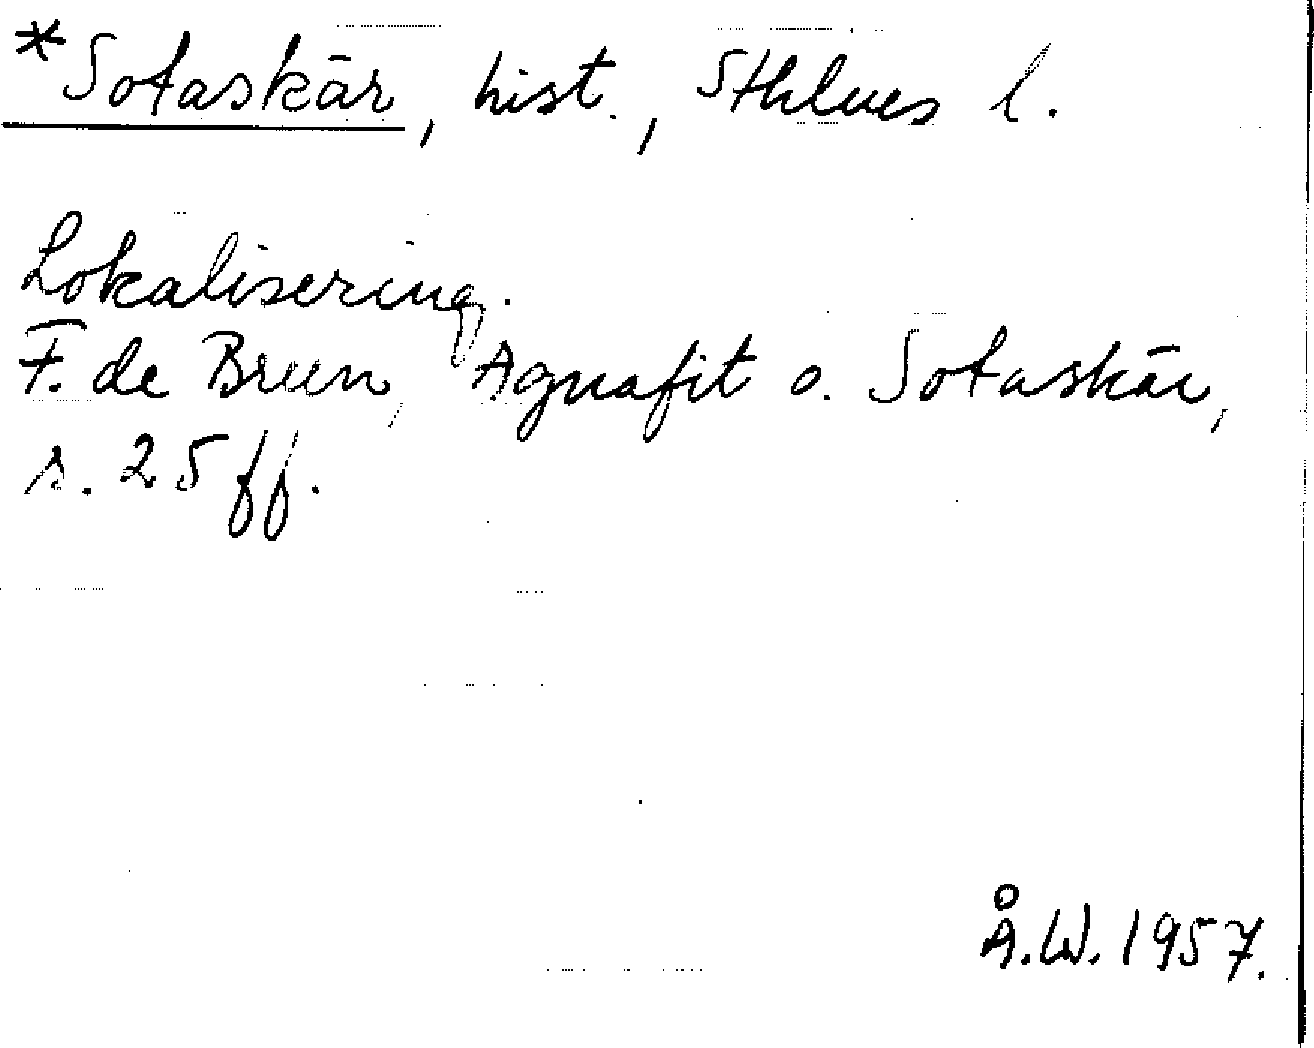 *Sotaskär, hist., Sthlms l.
Lokalisering.
F. de Brun, Agnafit o. Sotaskär,
s. 25 ff.
Å.W. 1957.